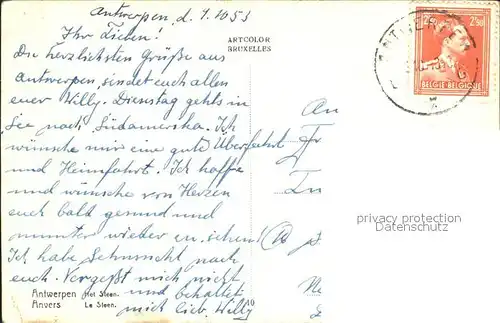 Antwerpen d. 1.1053
ARTCOLOR
BRUXELLES
Ihr Lieben!
Die herzlichsten Grüße aus
Antwerpen, sindet euch allen
euer Willy. Dienstag gehts in
See nach Südamerika. Ich
wünsche mir eine gute Überfahrt
und Heimfahrt. Ich hoffe
und wünsche von Herzen
euch bald gesund und
munter wieder zu sehen!
Ich habe Sehnsucht nach
euch. Vergeßt mich nicht
und behaltet
mich lieb. Willy
Antwerpen Het Steen.
Anvers Le Steen.
2F50
BELGIE BELGIQUE
An
privacy protection
Datenschutz